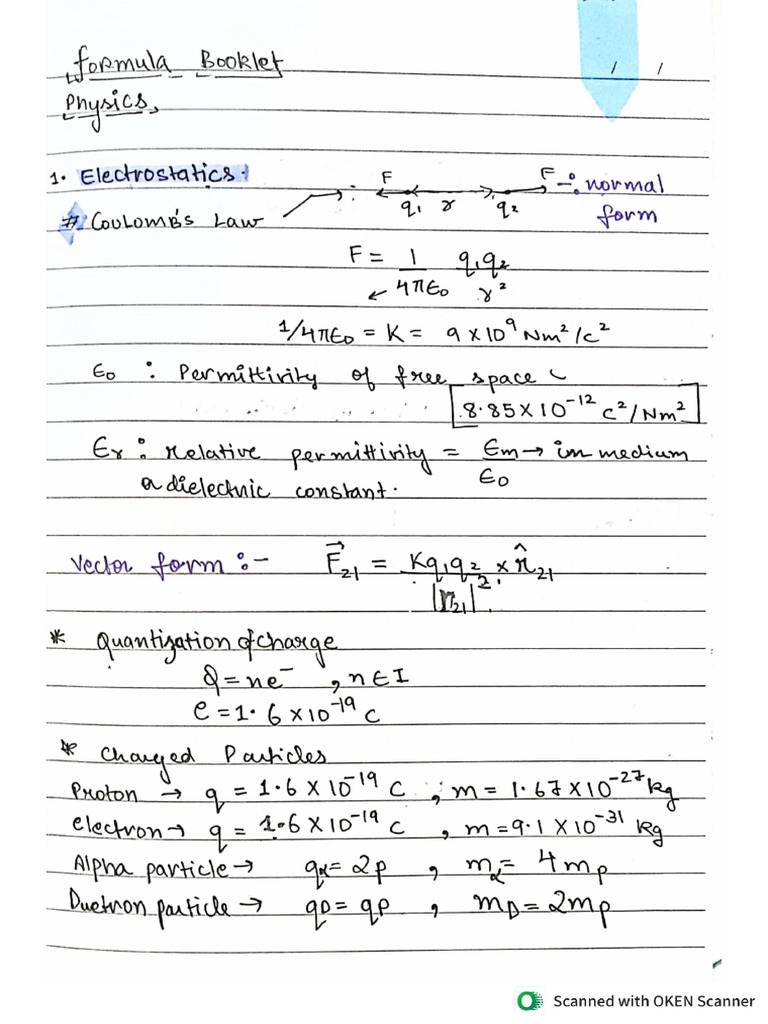 formula Booklet
/ /
Physics
1. Electrostatics.
F F -: normal
q1 r q2 form
# Coulomb's Law
F = 1/4πε0 q1q2/r²
1/4πε0 = K = 9 × 10⁹ Nm²/c²
ε0 : Permittivity of free space
8.85 × 10⁻¹² C²/Nm²
εr : Relative permittivity = εm → in medium / ε0
a dielectric constant.
Vector form :- F⃗21 = Kq1q2/|r21|² × r̂21
* Quantization of charge
Q = ne⁻ , n ∈ I
e = 1.6 × 10⁻¹⁹ C
* Charged Particles
Proton → q = 1.6 × 10⁻¹⁹ C , m = 1.67 × 10⁻²⁷ kg
electron → q = 1.6 × 10⁻¹⁹ C , m = 9.1 × 10⁻³¹ kg
Alpha particle → qα = 2p , mα = 4mp
Duetron particle → qD = qp , mD = 2mp
Scanned with OKEN Scanner